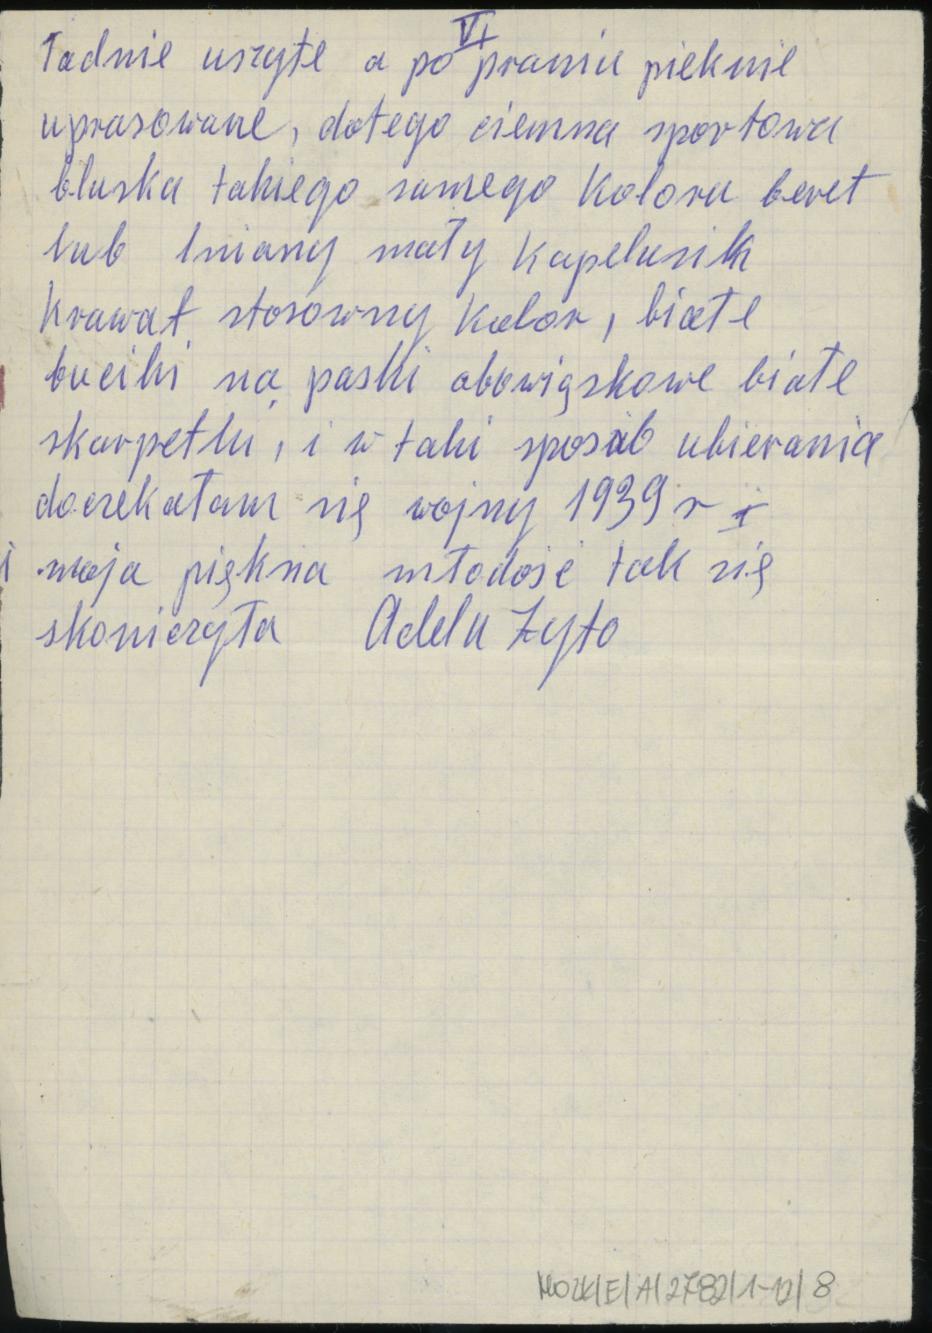 VI
ładnie uszyte a po praniu pieknie
uprasowane, dotego ciemna sportowa
bluska takiego samego koloru beret
lub lniany mały kapelusik
krawat stosowny kolor, białe
buciki na paski obowiązkowe białe
skarpetki, i w taki sposub ubierania
doczekałam się wojny 1939 r i
i moja piękna młodość tak się
skonieczyła Adela Zyto
MOZK/E/A/2782/1-12/8